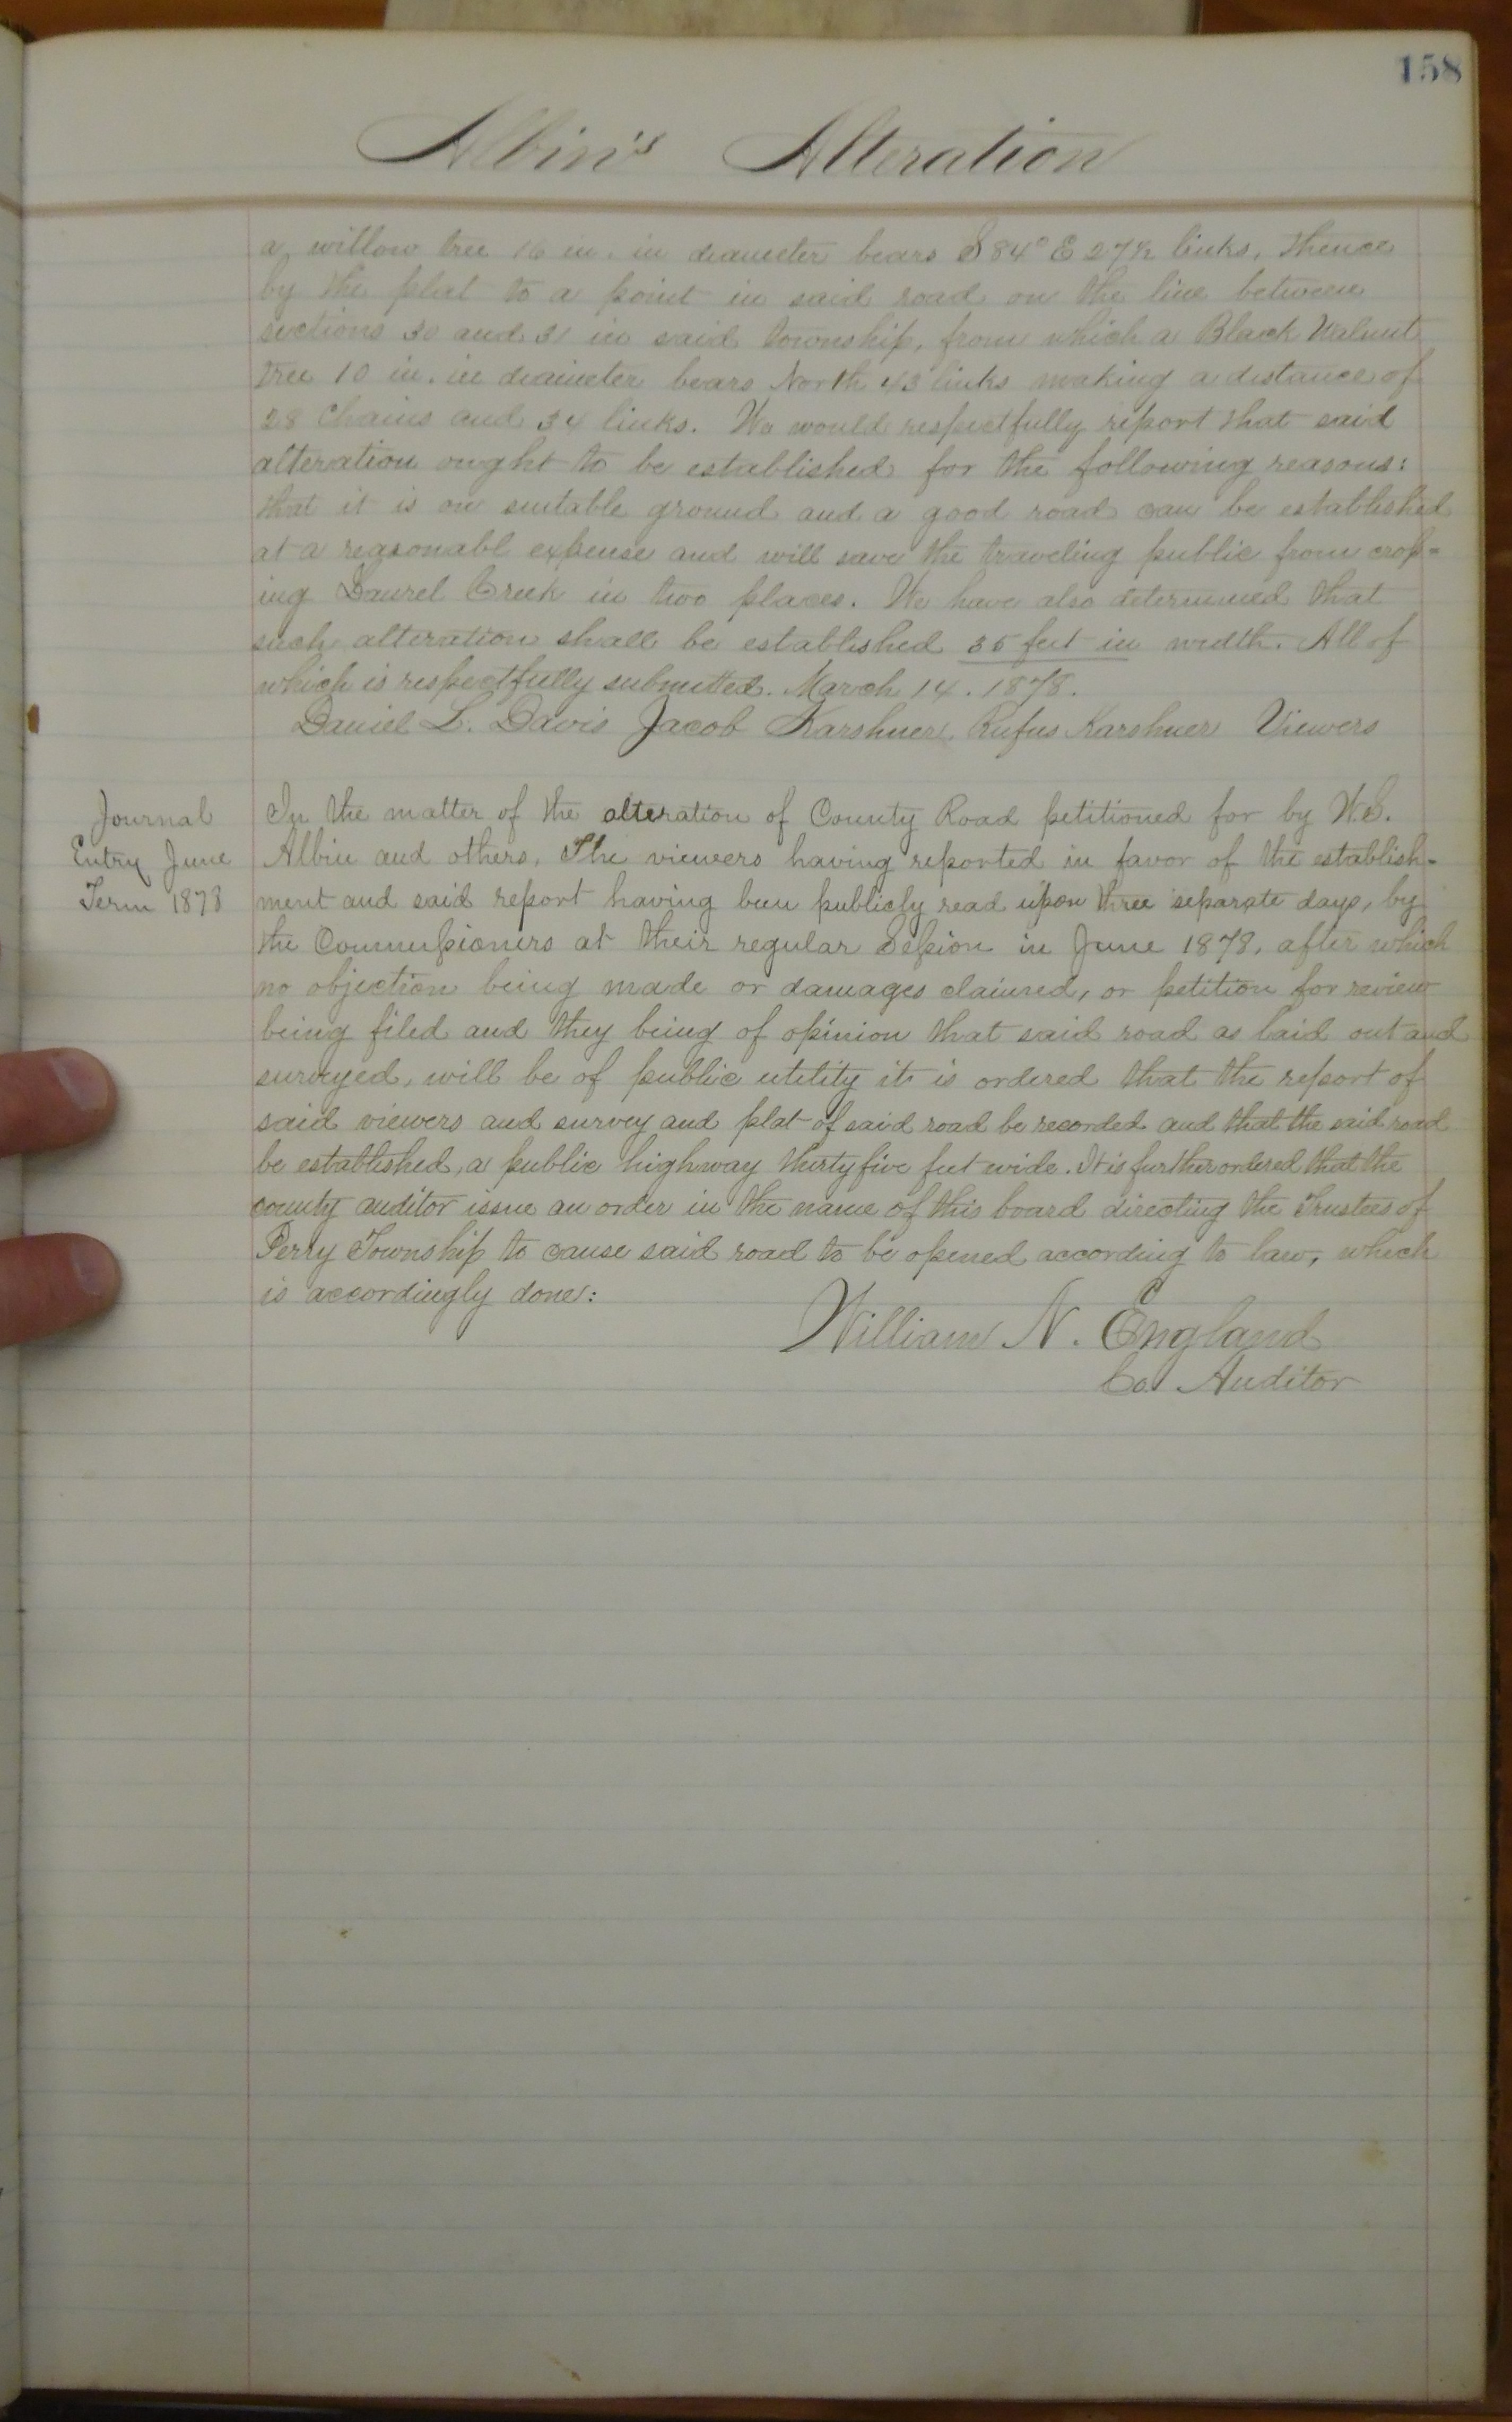 158
Albin's Alteration
a willow tree 16 in. in diameter bears S 84° E 27½ links, thence
by the plat to a point in said road on the line between
sections 30 and 31 in said township, from which a Black Walnut
tree 10 in. in diameter bears North 43 links making a distance of
28 Chains and 34 links. We would respectfully report that said
alteration ought to be established for the following reasons:
that it is on suitable ground and a good road can be established
at a reasonabl expense and will save the traveling public from crosſ=
ing Laurel Creek in two places. We have also determined that
such alteration shall be established 35 feet in width. All of
which is respectfully submitted. March 14. 1878.
Daniel L. Davis Jacob Karshner, Rufus Karshner Viewers
Journal
Entry June
Term 1878
In the matter of the alteration of County Road petitioned for by W.S.
Albin and others, The viewers having reported in favor of the establish-
ment and said report having been publicly read upon three separate days, by
the Commiſsioners at their regular Seſsion in June 1878, after which
no objection being made or damages claimed, or petition for review
being filed and they being of opinion that said road as laid out and
surveyed, will be of public utility it is ordered that the report of
said viewers and survey and plat of said road be recorded and that the said road
be established, a public highway thirty five feet wide. It is further ordered that the
county auditor issue an order in the name of this board directing the Trustees of
Perry Township to cause said road to be opened according to law, which
is accordingly done:
William N. England
Co. Auditor